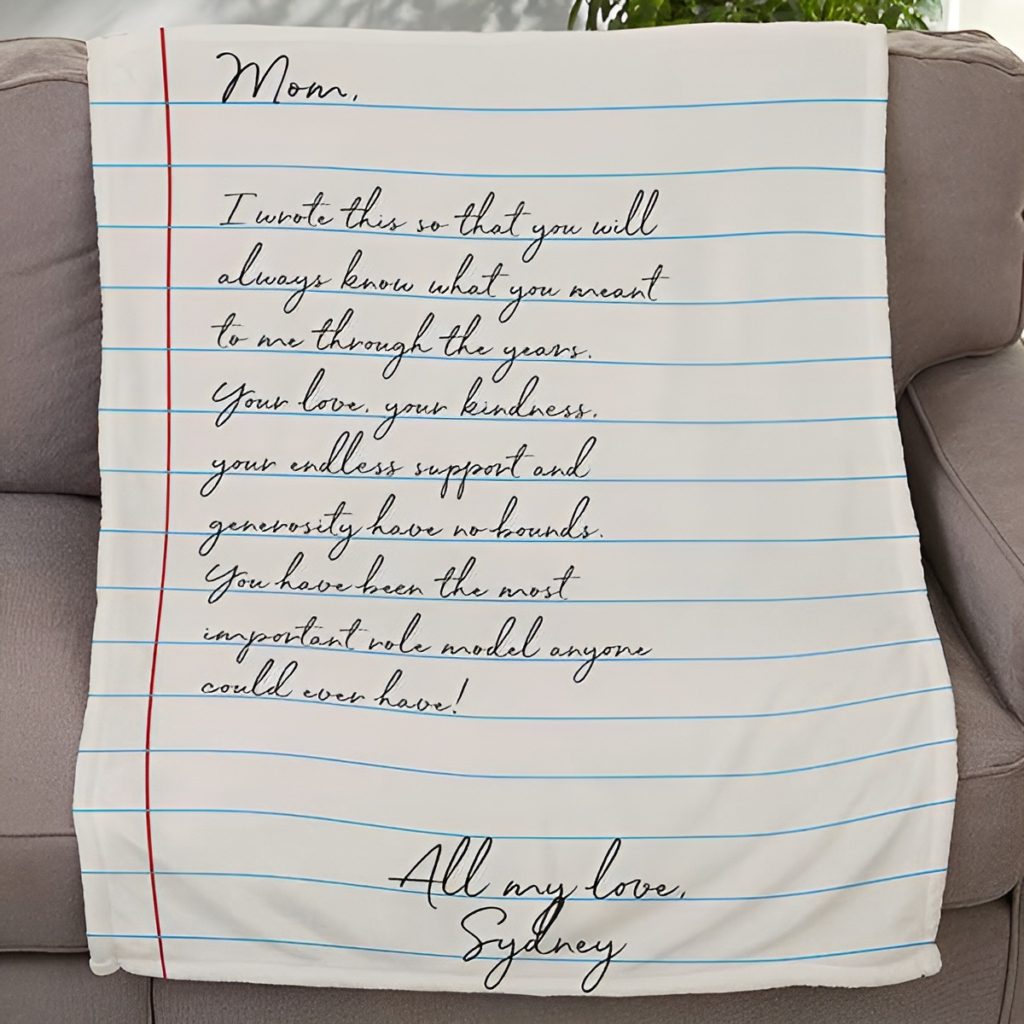 Mom,
I wrote this so that you will
always know what you meant
to me through the years.
Your love, your kindness,
your endless support and
generosity have no bounds.
You have been the most
important role model anyone
could ever have!
All my love,
Sydney